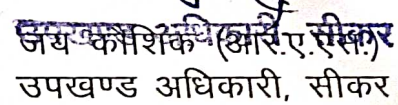 जय कौशिक (आर.ए.एस.)
उपखण्ड अधिकारी, सीकर